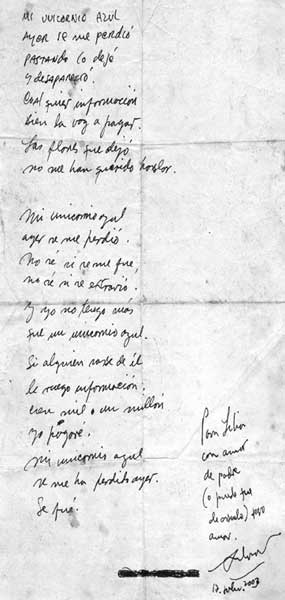 MI UNICORNIO AZUL
AYER SE ME PERDIÓ
PASTANDO LO DEJÉ
Y DESAPARECIÓ.
CUALQUIER INFORMACIÓN
bien la voy a pagar.
Las flores que dejó
no me han querido hablar.
Mi unicornio azul
ayer se me perdió.
No sé si se me fue,
no sé si se extravió.
Y yo no tengo más
que un unicornio azul.
Si alguien sabe de él
le ruego información.
cien mil o un millón
yo pagaré.
mi unicornio azul
se me ha perdido ayer.
Se fué.
Para
con amor
de padre
(o puedo que
amor.
2003